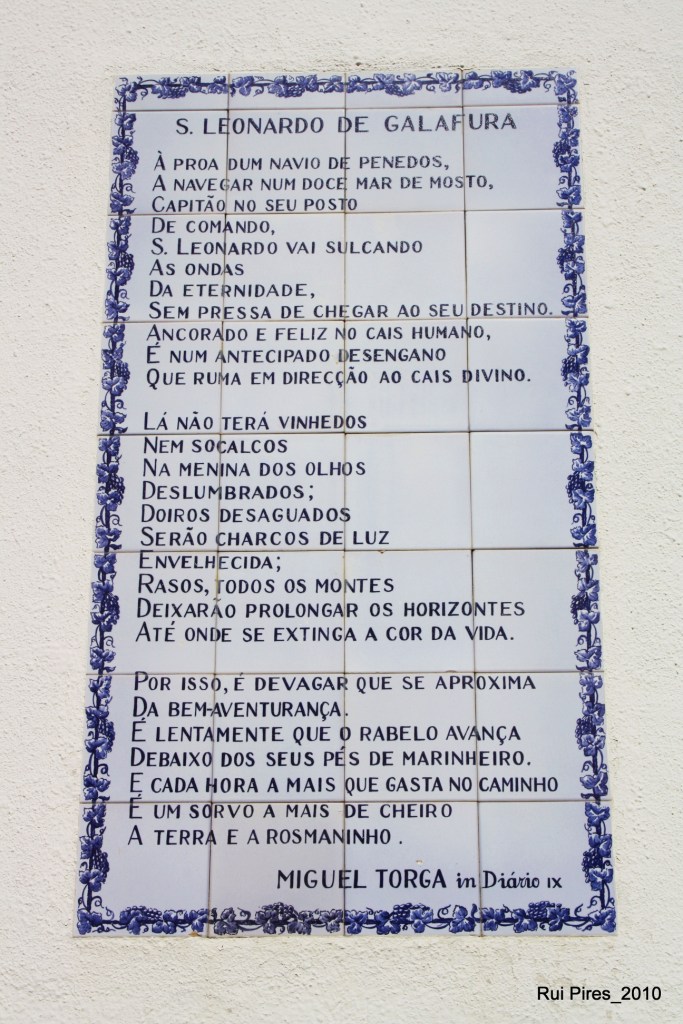 S. LEONARDO DE GALAFURA
À PROA DUM NAVIO DE PENEDOS,
A NAVEGAR NUM DOCE MAR DE MOSTO,
CAPITÃO NO SEU POSTO
DE COMANDO,
S. LEONARDO VAI SULCANDO
AS ONDAS
DA ETERNIDADE,
SEM PRESSA DE CHEGAR AO SEU DESTINO.
ANCORADO E FELIZ NO CAIS HUMANO,
É NUM ANTECIPADO DESENGANO
QUE RUMA EM DIRECÇÃO AO CAIS DIVINO.
LÁ NÃO TERÁ VINHEDOS
NEM SOCALCOS
NA MENINA DOS OLHOS
DESLUMBRADOS;
DOIROS DESAGUADOS
SERÃO CHARCOS DE LUZ
ENVELHECIDA;
RASOS, TODOS OS MONTES
DEIXARÃO PROLONGAR OS HORIZONTES
ATÉ ONDE SE EXTINGA A COR DA VIDA.
POR ISSO, É DEVAGAR QUE SE APROXIMA
DA BEM-AVENTURANÇA.
É LENTAMENTE QUE O RABELO AVANÇA
DEBAIXO DOS SEUS PÉS DE MARINHEIRO.
E CADA HORA A MAIS QUE GASTA NO CAMINHO
É UM SORVO A MAIS DE CHEIRO
A TERRA E A ROSMANINHO.
MIGUEL TORGA in Diário IX
Rui Pires_2010